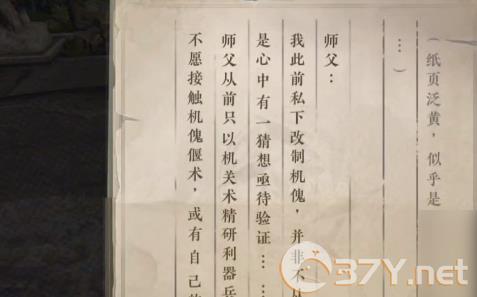 （纸页泛黄，似乎是
…）
师父：
我此前私下改制机傀，并非不从
是心中有一猜想亟待验证……
师父从前只以机关术精研利器兵
不愿接触机傀偃术，或有自己的
37Y.net